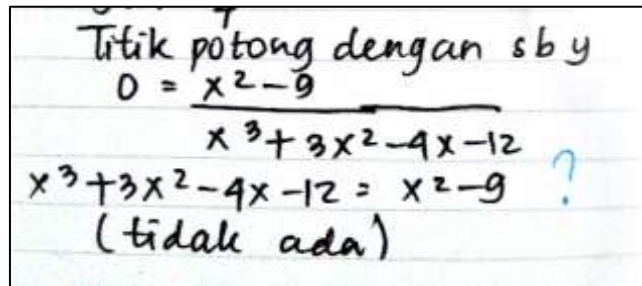 Titik potong dengan sb y
0 = x² - 9
x³ + 3x² - 4x - 12
x³ + 3x² - 4x - 12 = x² - 9 ?
(tidak ada)